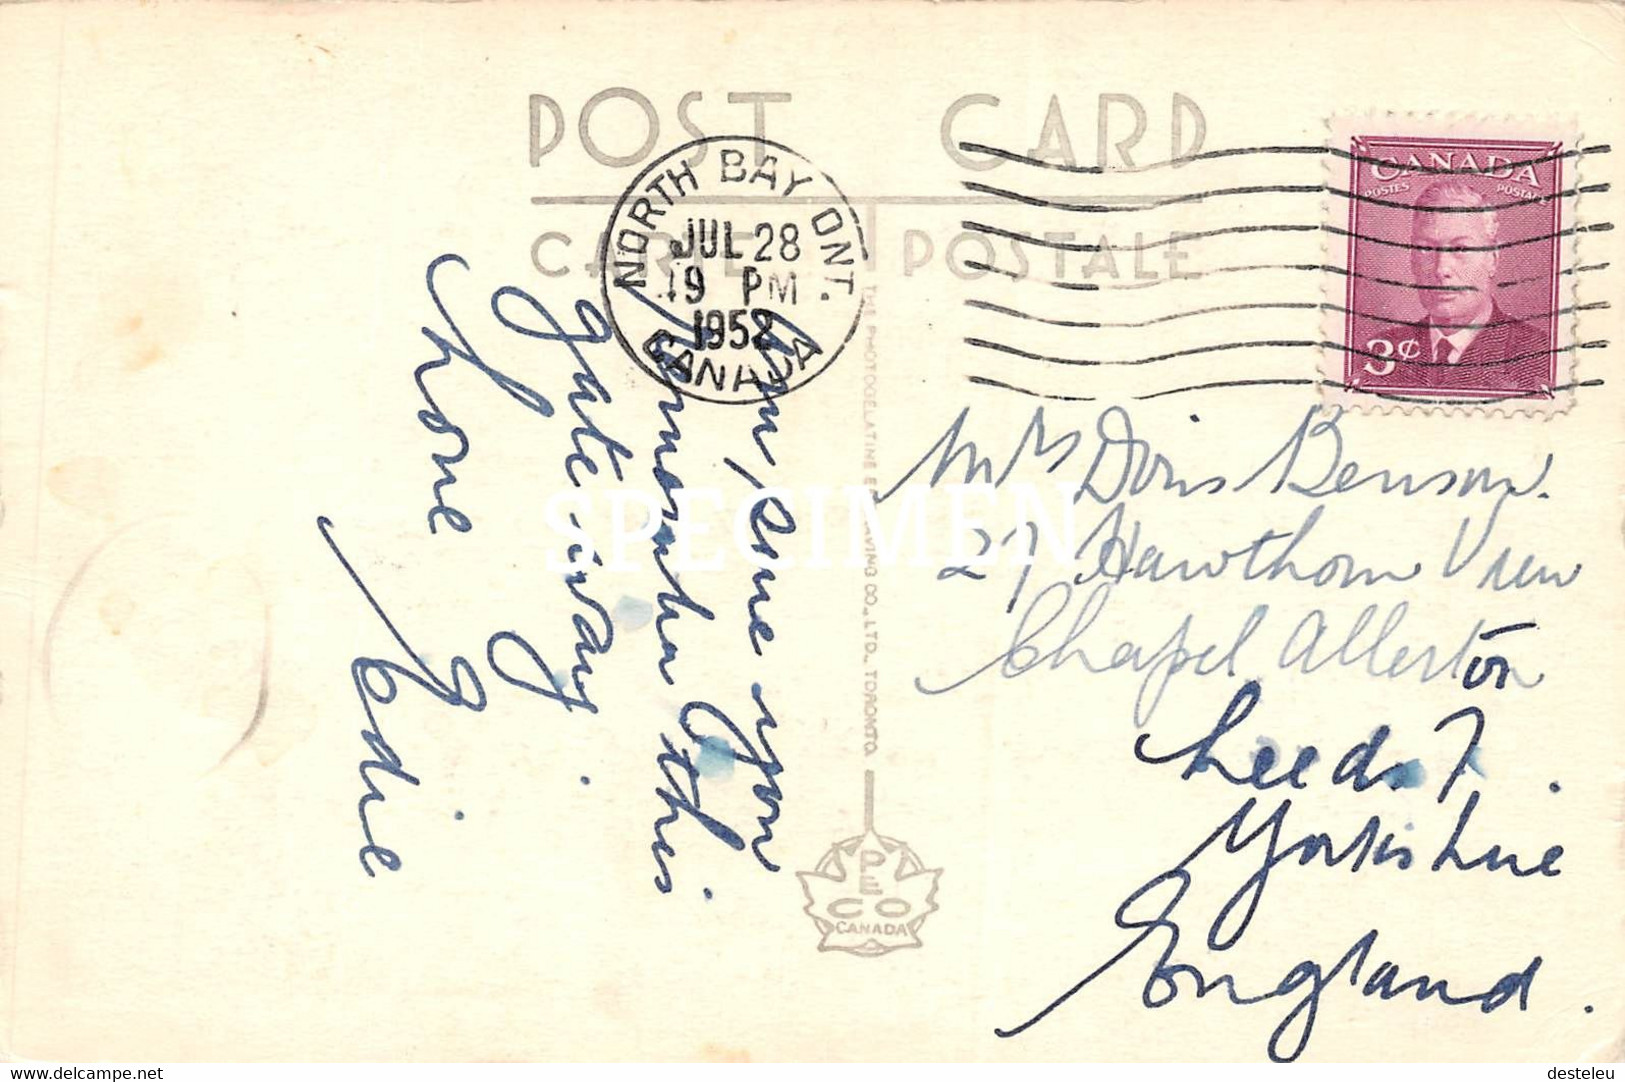 POST CARD
CARTE POSTALE
NORTH BAY ONT.
JUL 28
19 PM
1952
CANADA
CANADA
POSTES POSTAGE
3¢
Am sure you
remember this
gate way.
Love
Edie
THE PHOTOGELATINE ENGRAVING CO., LTD., TORONTO
PECO
CANADA
Mrs Doris Benson.
27 Hawthorn View
Chapel Allerton
Leeds 7.
Yorkshire
England.
SPECIMEN
https://www.delcampe.net
desteleu